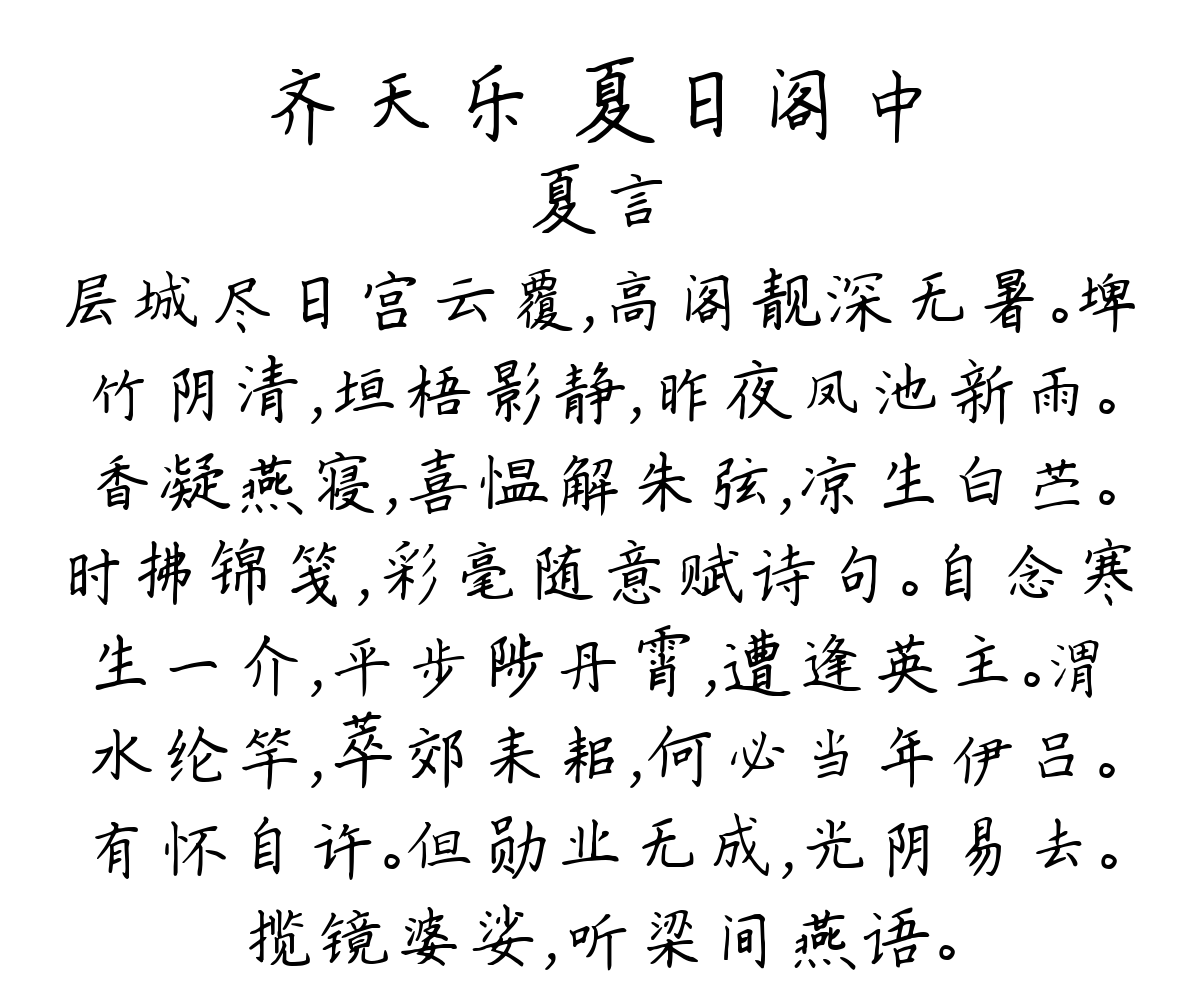 齐天乐 夏日阁中
夏言
层城尽日宫云覆,高阁靓深无暑。埤
竹阴清,垣梧影静,昨夜凤池新雨。
香凝燕寝,喜愠解朱弦,凉生白苎。
时拂锦笺,彩毫随意赋诗句。自念寒
生一介,平步陟丹霄,遭逢英主。渭
水纶竿,莘郊耒耜,何必当年伊吕。
有怀自许。但勋业无成,光阴易去。
揽镜婆娑,听梁间燕语。